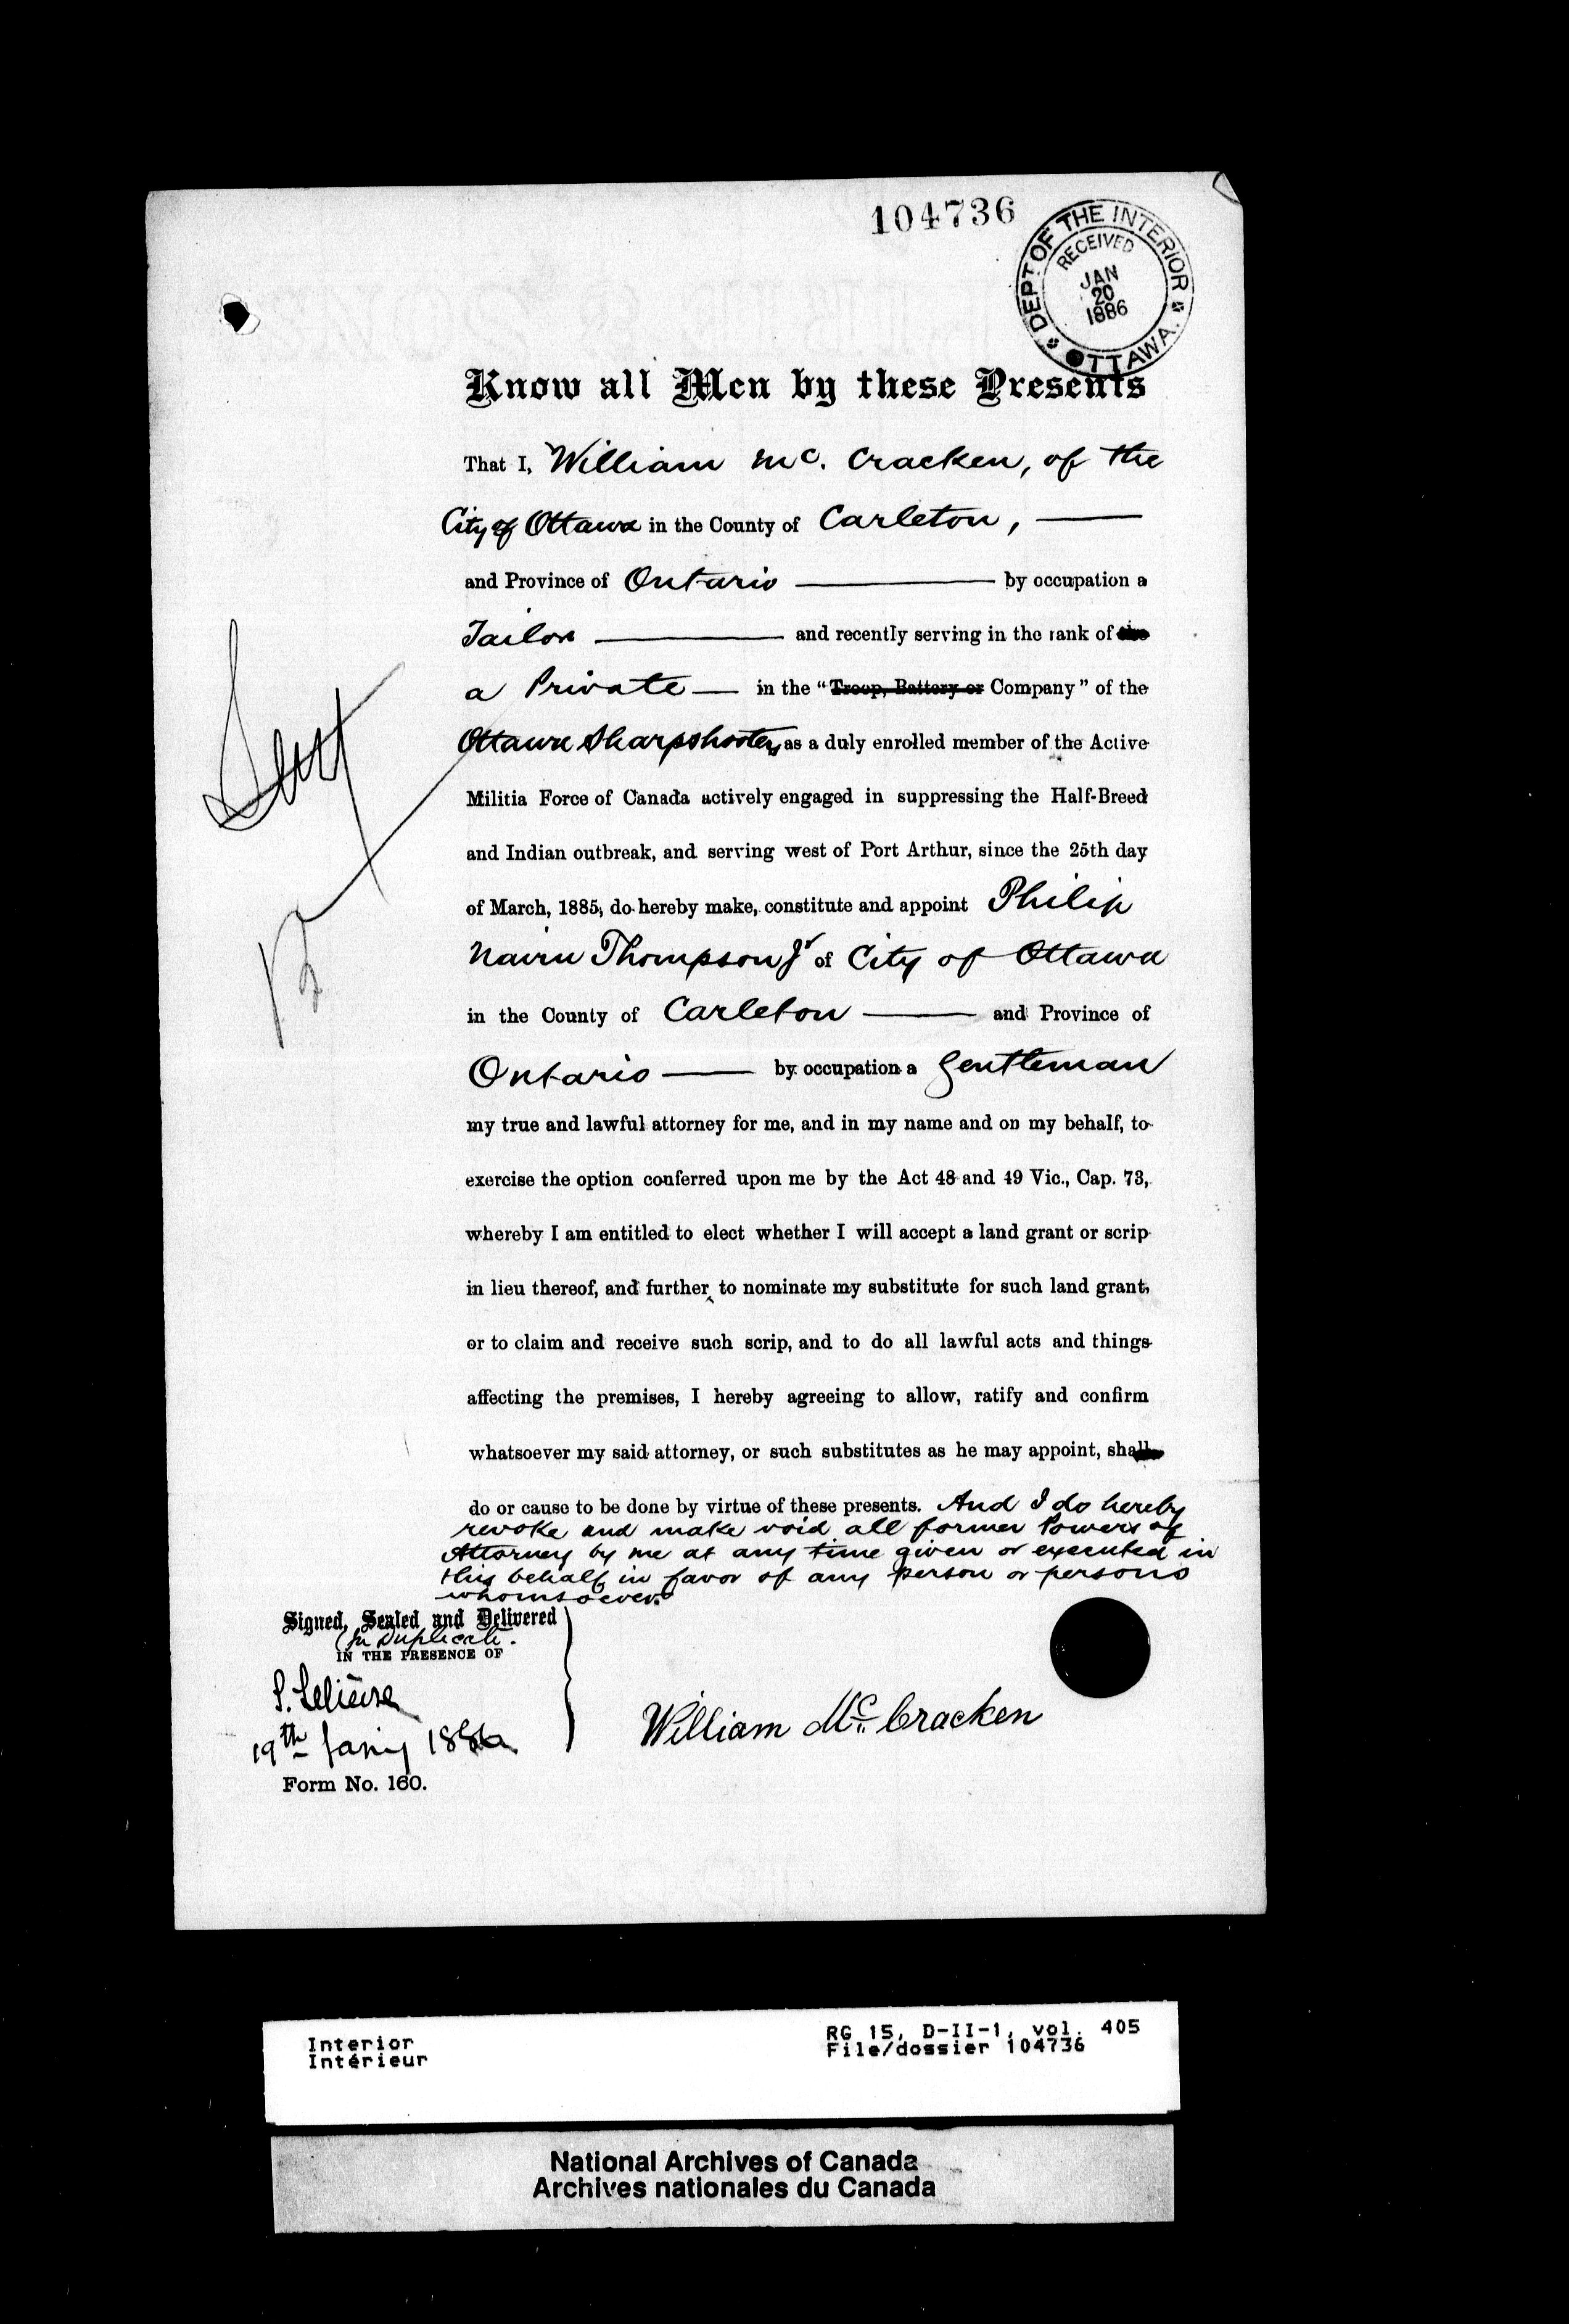 104736
DEPT OF THE INTERIOR
RECEIVED
JAN
20
1886
OTTAWA.
Know all Men by these Presents
That I, William Mc. Cracken, of the
City of Ottawa in the County of Carleton,
and Province of Ontario by occupation a
Tailor and recently serving in the rank of the
a Private in the "Troop, Battery or Company" of the
Ottawa Sharpshooters, as a duly enrolled member of the Active
Militia Force of Canada actively engaged in suppressing the Half-Breed
and Indian outbreak, and serving west of Port Arthur, since the 25th day
of March, 1885, do hereby make, constitute and appoint Philip
Nairn Thompson Jr of City of Ottawa
in the County of Carleton and Province of
Ontario by occupation a Gentleman
my true and lawful attorney for me, and in my name and on my behalf, to
exercise the option conferred upon me by the Act 48 and 49 Vic., Cap. 73,
whereby I am entitled to elect whether I will accept a land grant or scrip
in lieu thereof, and further to nominate my substitute for such land grant,
or to claim and receive such scrip, and to do all lawful acts and things
affecting the premises, I hereby agreeing to allow, ratify and confirm
whatsoever my said attorney, or such substitutes as he may appoint, shall
do or cause to be done by virtue of these presents. And I do hereby
revoke and make void all former Powers of
Attorney by me at any time given or executed in
this behalf in favor of any person or persons
whomsoever.
Signed, Sealed and Delivered
(In Duplicate.
IN THE PRESENCE OF
19th Jany 1886
William Mc. Cracken
Form No. 160.
Interior
Intérieur
RG 15, D-II-1, vol. 405
File/dossier 104736
National Archives of Canada
Archives nationales du Canada